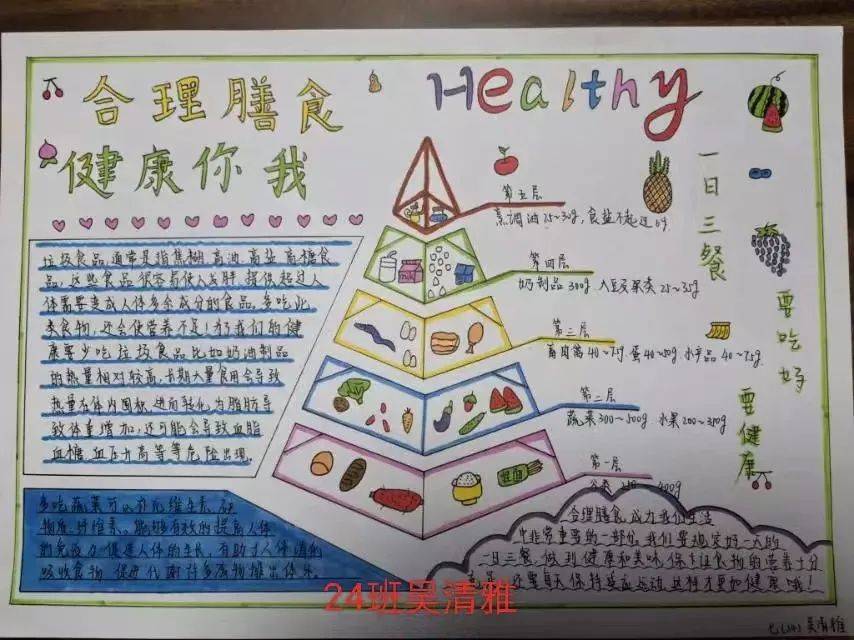 合理膳食
Healthy
健康你我
一日三餐
要吃好
要健康
第五层
烹调油25~30g,食盐不超过6g
第四层
奶制品300g 大豆及果类25~35g
第三层
畜肉禽40~75g.蛋40~50g.水产品40~75g
第二层
蔬菜300~500g 水果200~350g
第一层
谷类 400g
垃圾食品,通常是指焦糊.高油.高盐.高糖食
品,这些食品很容易使人发胖.提供超过人
体需要变成人体多余成分的食品,多吃此
类食物,还会使营养不足!为了我们的健
康要少吃垃圾食品比如奶油制品
的热量相对较高,长期大量食用会导致
热量在体内囤积,进而转化为脂肪导
致体重增加,还可能会导致血脂
血糖.血压升高等等危险出现.
多吃蔬菜可以补充维生素,矿
物质,纤维素,能够有效的提高人体
的免疫力 促进人体的生长,有助于人体消化
吸收食物 促进代谢 物排出体外.
合理膳食,成为我们生活
中非常重要的一部分,我们要规定好一天的
一日三餐,做到健康和美味,保证食物的营养十分
还要每天保持适量运动,这样才更加健康哦!
24班吴清雅
七(24)吴清雅